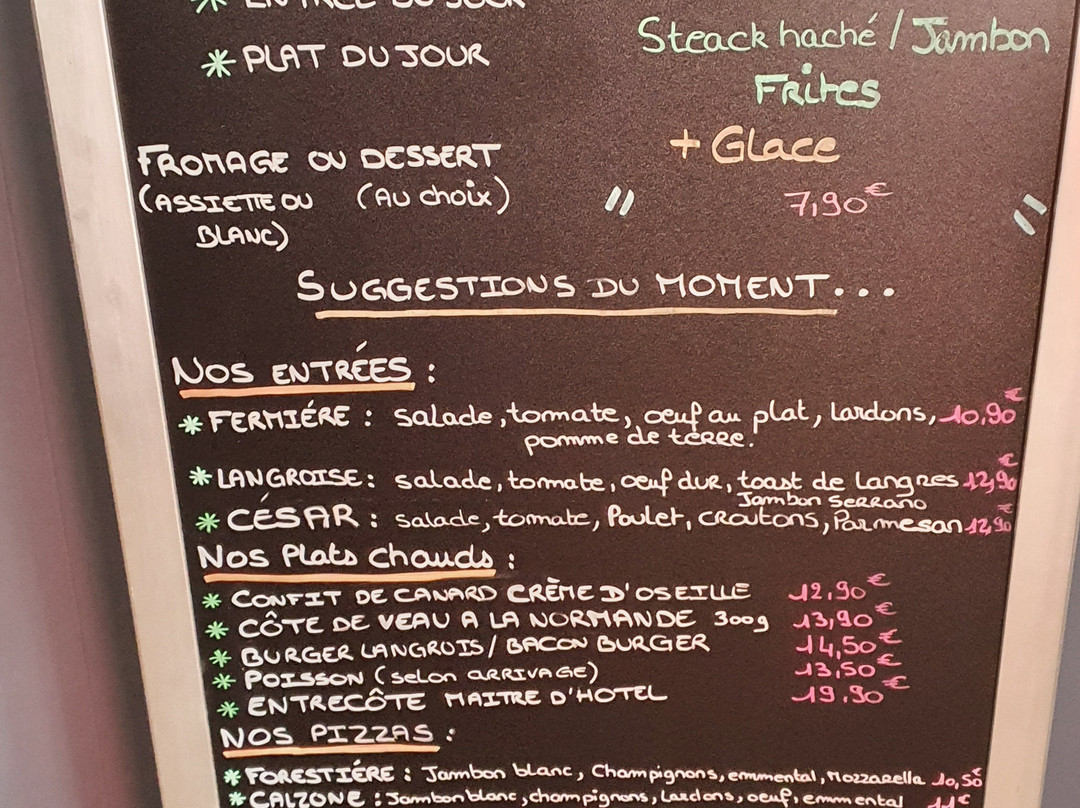 ENTRÉE DU JOUR
* PLAT DU JOUR
Steack haché / Jambon
Frites
+ Glace
7,90€
FROMAGE OU DESSERT
(ASSIETTE OU (Au choix)
BLANC)
SUGGESTIONS DU MOMENT...
NOS ENTRÉES :
* FERMIÉRE : salade, tomate, oeuf au plat, lardons, 10,90€
pomme de terre.
* LANGROISE : salade, tomate, oeuf dur, toast de langres 12,90€
Jambon Serrano
* CÉSAR : salade, tomate, Poulet, croutons, Parmesan 12,90€
NOS Plats chauds :
* CONFIT DE CANARD CRÈME D'OSEILLE 12,90€
* CÔTE DE VEAU A LA NORMANDE 300g 13,90€
* BURGER LANGROIS / BACON BURGER 14,50€
* POISSON (selon ARRIVAGE) 13,50€
* ENTRECÔTE MAITRE D'HOTEL 19,90€
NOS PIZZAS :
* FORESTIÉRE : Jambon blanc, Champignons, emmental, Mozzarella 10,50€
* CALZONE : Jambon blanc, champignons, lardons, oeuf, emmental